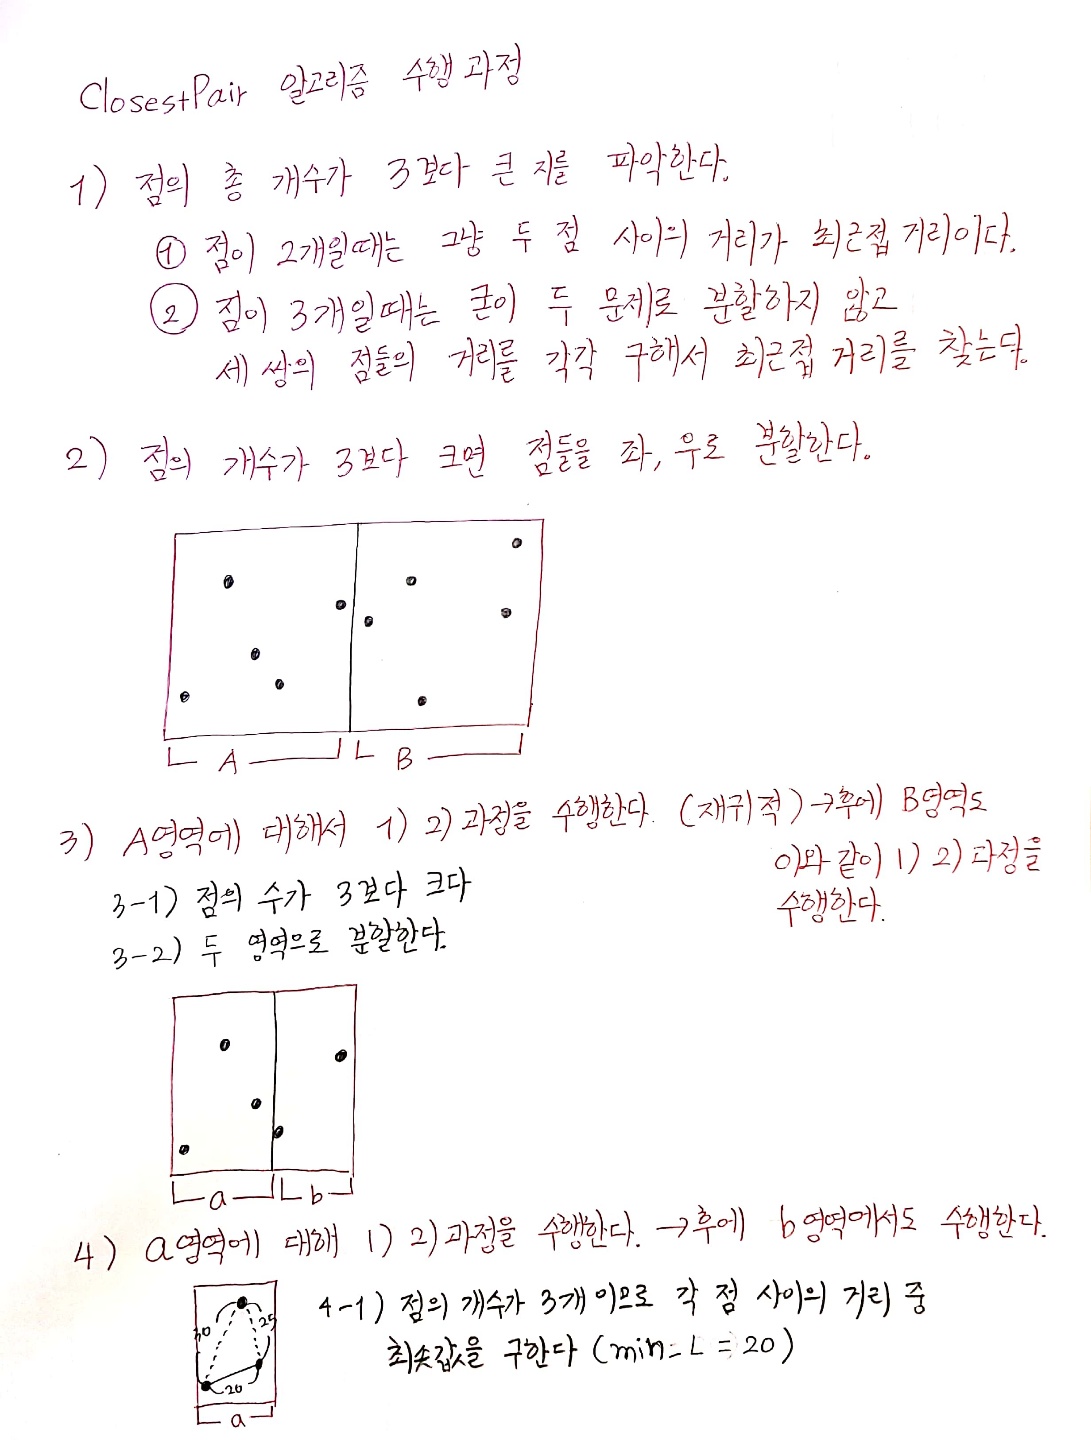 ClosestPair 알고리즘 수행 과정
1) 점의 총 개수가 3보다 큰 지를 파악한다.
① 점이 2개일때는 그냥 두 점 사이의 거리가 최근접 거리이다.
② 점이 3개일때는 굳이 두 문제로 분할하지 않고
세 쌍의 점들의 거리를 각각 구해서 최근접 거리를 찾는다.
2) 점의 개수가 3보다 크면 점들을 좌, 우로 분할한다.
A B
3) A영역에 대해서 1) 2) 과정을 수행한다. (재귀적) → 후에 B영역도
이와 같이 1) 2) 과정을
수행한다.
3-1) 점의 수가 3보다 크다
3-2) 두 영역으로 분할한다.
a b
4) a영역에 대해 1) 2) 과정을 수행한다. → 후에 b영역에서도 수행한다.
4-1) 점의 개수가 3개 이므로 각 점 사이의 거리 중
최솟값을 구한다 (min = L = 20)
30 25
20
a